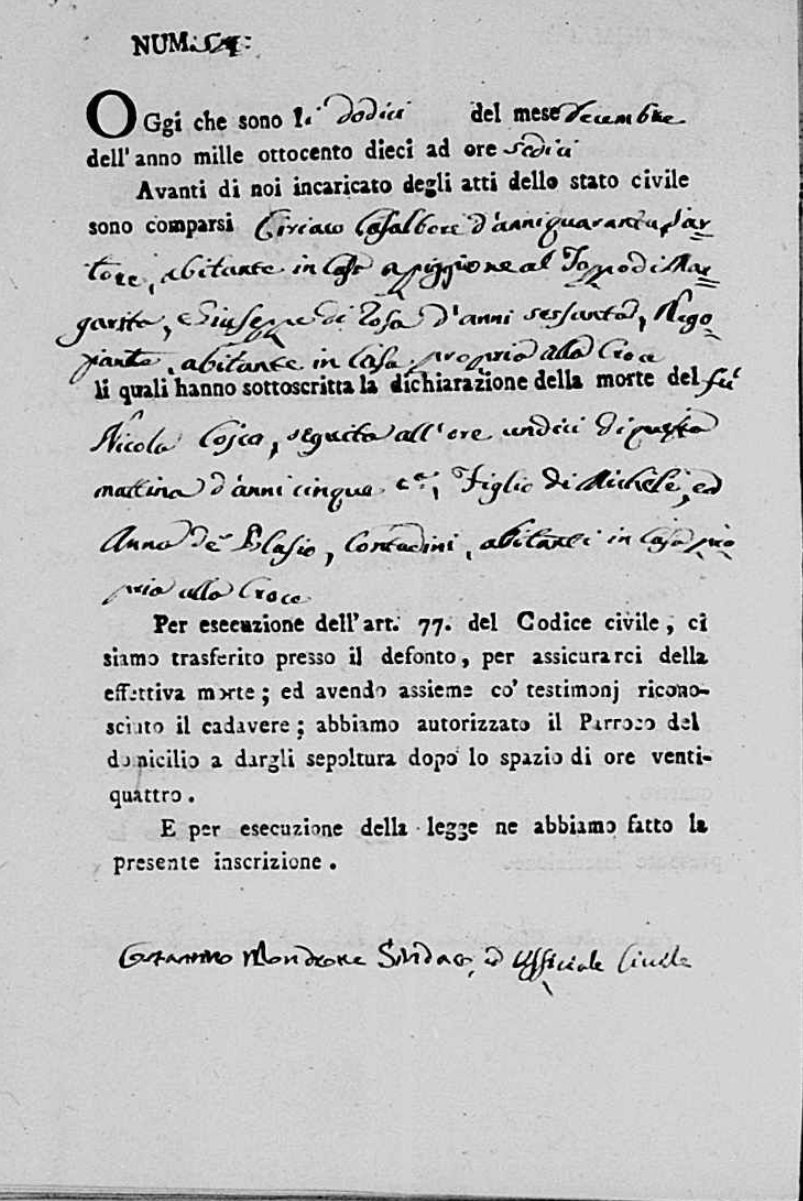 NUM. 54:
OGgi che sono li dodici del mese decembre
dell'anno mille ottocento dieci ad ore sedici
Avanti di noi incaricato degli atti dello stato civile
sono comparsi Ciriaco Casalbore d'anni quaranta, Sar=
tore, abitante in Casa a piggione al Toppo di Mar=
garita, e Giuseppe di Rosa d'anni sessanta, Nego=
ziante, abitante in Casa propria alla Croce
li quali hanno sottoscritta la dichiarazione della morte del fù
Nicola Cosca, seguita all'ore undici di questa
mattina d'anni cinque, Figlio di Michele, ed
Anna de Blasio, Contadini, abitanti in Casa pro
pria alla Croce
Per esecuzione dell'art. 77. del Codice civile, ci
siamo trasferito presso il defonto, per assicurarci della
effettiva morte; ed avendo assieme co' testimonj ricono-
sciuto il cadavere; abbiamo autorizzato il Parroco del
domicilio a dargli sepoltura dopo lo spazio di ore venti-
quattro.
E per esecuzione della legge ne abbiamo fatto la
presente inscrizione.
Mondrone Sindaco, ed Ufficiale Civile